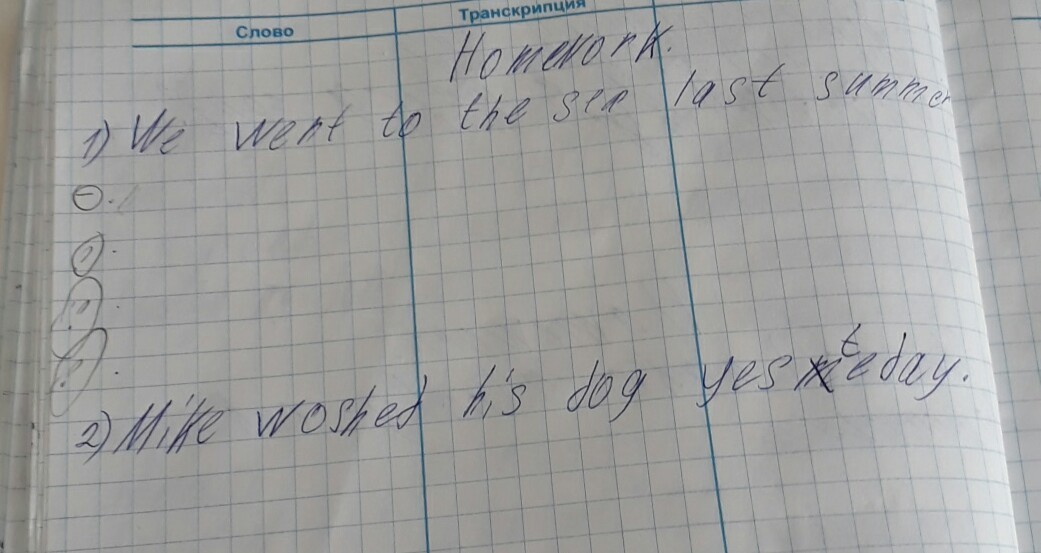 Слово Транскрипция
Homework.
1) We went to the sea last summer
⊖.
?.
?.
?.
2) Mike woshed his dog yesteday.